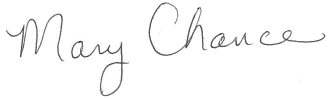 Mary Chance